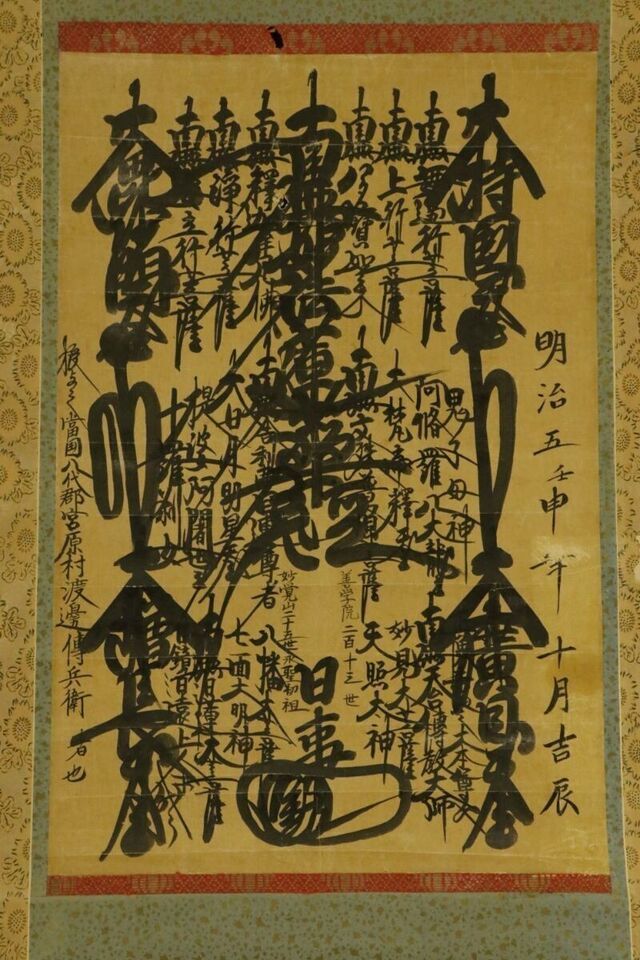 明治五壬申年十月吉辰
大持國天王
南無無邊行菩薩
南無上行菩薩
南無多寶如来
南無妙法蓮華経
南無釋迦牟尼佛
南無浄行菩薩
南無安立行菩薩
大毘沙門天王
鬼子母神
阿脩羅八大龍王
大梵帝釋王
南無文殊普賢菩薩
南無舎利弗尊者
大日月明星天
提婆阿闍世王
十羅刹女
大廣目天王
南無天台傳教大師
妙見大菩薩
天照大神
善学院二百十三世
日事
妙覚山二十五世
初祖
八幡大菩薩
七面大明神
南無日蓮大菩薩
大増長天王
授与之當国八代郡宮原村渡邊傳兵衛者也